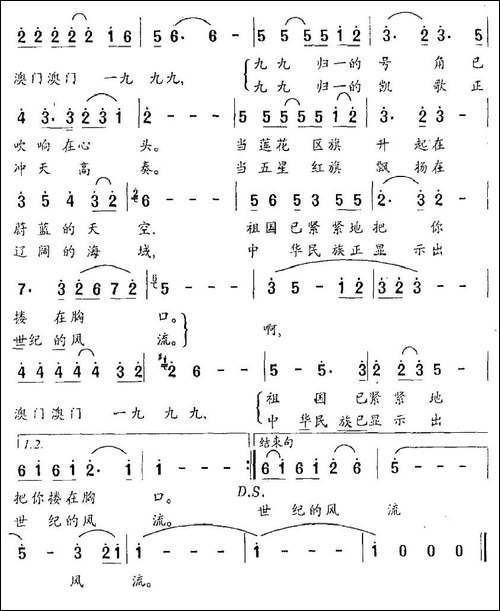 2 2 2 2 2 1 6 | 5 6. 6 - | 5 5 5 5 1 2 | 3. 2 3. 5
澳门澳门 一九 九九, 九九 归一的 号 角已
九九 归一的 凯 歌正
4 3. 3 2 3 1 | 2 - - - | 5 5 5 5 1 2 | 5 - 3 2
吹 响在心 头。 当 莲花 区旗 升 起在
冲 天 高 奏。 当 五星 红旗 飘 扬在
3 5 4 3 2 | 6 - - - | 5 6 5 3 5 5 | 2. 3 2
蔚 蓝的天 空. 祖国已紧紧地把 你
辽 阔的海 域, 中 华民族正显 示出
7. 3 2 6 7 2 | 5 - - - | 3 5 - 1 2 | 3 2 3 - -
搂 在胸 口。 啊,
世纪 的风 流。
4 4 4 4 4 3 2 | 2 6 - - | 5 - 5. 3 | 2 2 3 5 -
澳门澳门 一九 九九, 祖 国 已紧 紧地
中 华民 族已显 示出
1.2. 结束句
6 1 6 1 2. 1 | 1 - - - :| 6 1 6 1 2 6 | 5 - - -
把你搂在胸 口。 D.S. 世 纪的风 流
世 纪的风 流。
5 - 3 2 1 | 1 - - - | 1 - - - | 1 0 0 0 ||
风 流。